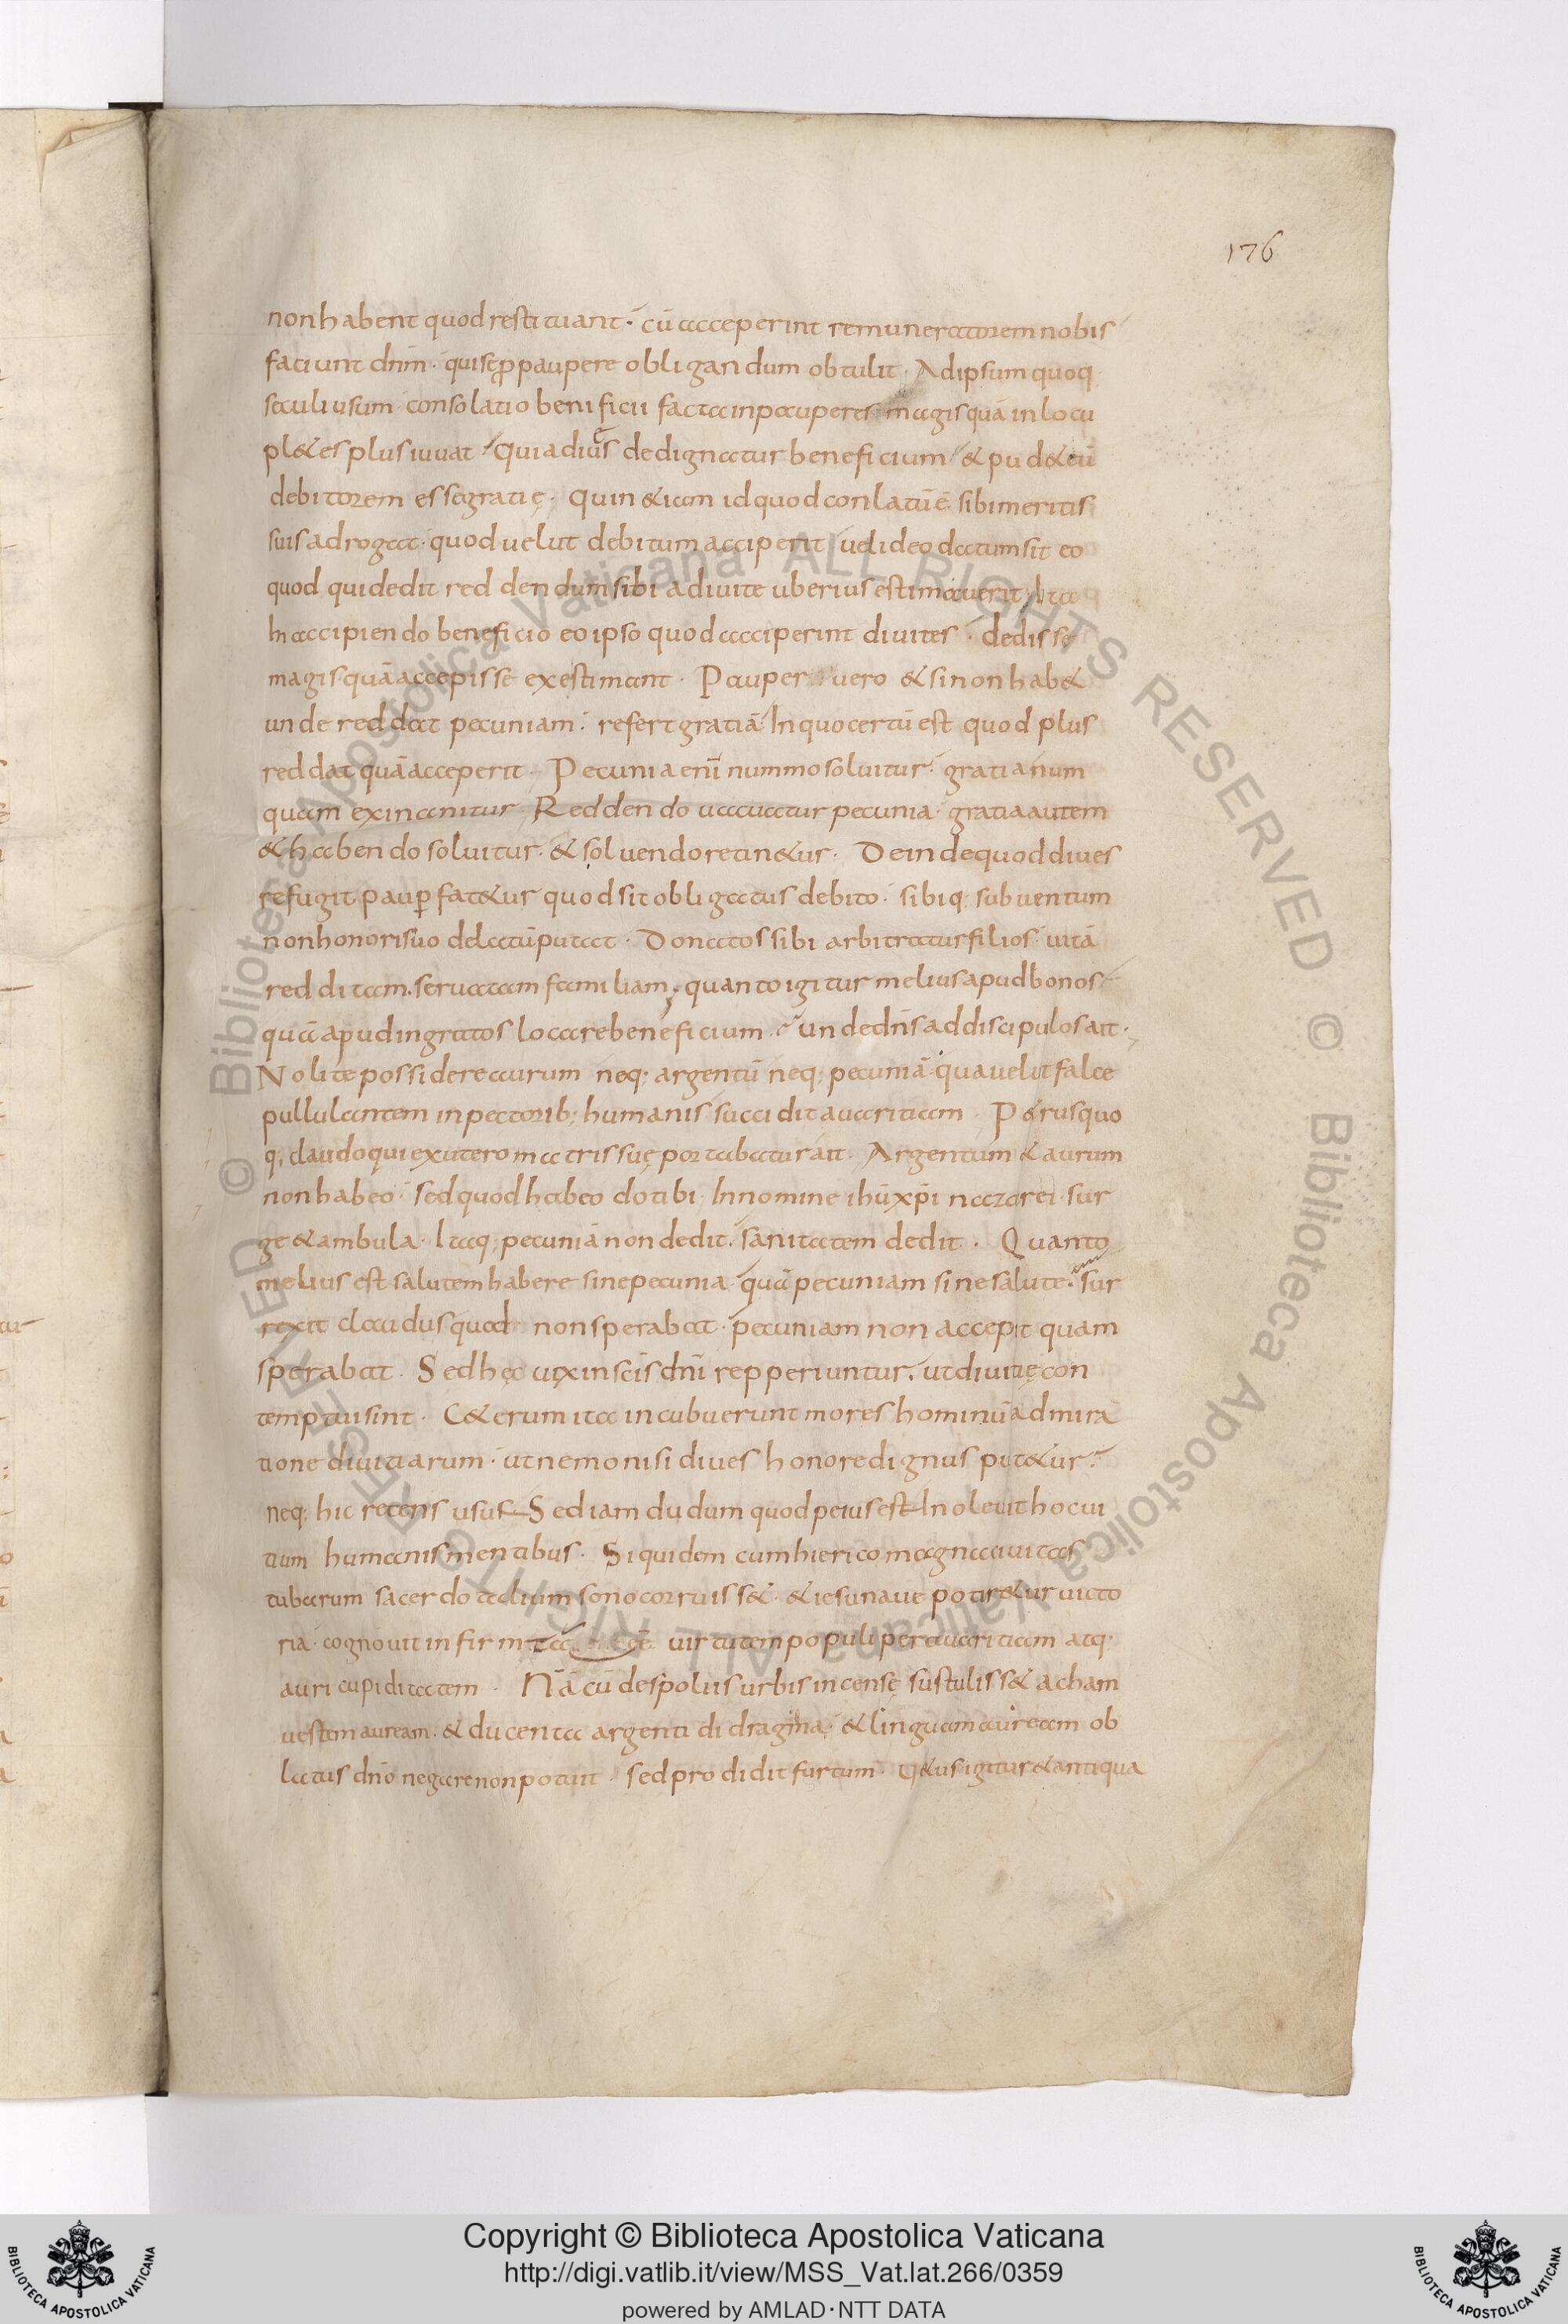 176
non habent quod restituant· cū acceperint remuneratorem nobis
faciunt dnm̄· qui se ꝓ paupere obligandum obtulit· Ad ipsum quoq·
saeculi usum· consolatio benificii facta in pauperes· magis quā in locu
pl&es plus iuuat· Quia diues dedignatur beneficium & pud& eū
debitorem esse gratię· Quin &iam id quod conlatū ē· sibi meritis
suis adrogat· quod uelut debitum acciperit uel ideo datum sit eo
quod qui dedit reddendum sibi a diuite uberius estimauerit, Ita
In accipiendo beneficio eo ipso quod acciperint diuites· dedisse
magis quā accepisse exestimant· Pauper uero & si non hab&
unde reddat pecuniam· refert gratiā· In quo certū est quod plus
reddat quā acceperit· Pecunia enī nummo soluitur· gratia num
quam exinanitur· Reddendo uacuatur pecunia· gratia autem
& habendo soluitur· & soluendo retin&ur· Deinde quod diues
refugit paup̱ fat&ur quod sit obligatus debito· sibiq; subuentum
non honori suo delatū putat· Donatos sibi arbitratur filios· uitā
redditam. seruatam familiam; quanto igitur melius apud bonos
quā apud ingratos locare beneficium· unde dn̄s ad discipulos ait·
Nolite possidere aurum neq; argentū neq; pecuniā· qua uelut falce
pullulantem in pectorib; humanis succidit auaritiam· P&rus quo
q; claudo qui ex utero matris suę portabatur ait· Argentum & aurum
non habeo· sed quod habeo do tibi· In nomine ihū xp̄i nazarei· sur
ge & ambula· Itaq; pecuniā non dedit. sanitatem dedit· Quanto
melius est salutem habere sine pecunia· quā pecuniam sine salute· sur
rexit claudus quod non sperabat· pecuniam non accepit quam
sperabat· Sed hęc uix in sc̄is dn̄i repperiuntur. ut diuitię con
temptui sint· C&erum ita incubuerunt mores hominū admira
tione diuitiarum· ut nemo nisi diues honore dignus put&ur·
neq; hic recens usus· Sed iam dudum quod peius est· Inoleuit hoc ui
tium humanis mentibus· Siquidem cum hierico magna ciuitas
tubarum sacerdotalium sono corruiss&· & iesu naue potir&ur uicto
ria· cognouit uirtutem populi per auaritiam atq·
auri cupiditatem· Nā cū de spoliis urbis incensę sustuliss& acham
uestem auream· & ducenta argenti didragma· & linguam auream ob
latus dn̄o negare non potuit· sed prodidit furtum· U&us igitur & antiqua
Copyright © Biblioteca Apostolica Vaticana
http://digi.vatlib.it/view/MSS_Vat.lat.266/0359
powered by AMLAD·NTT DATA